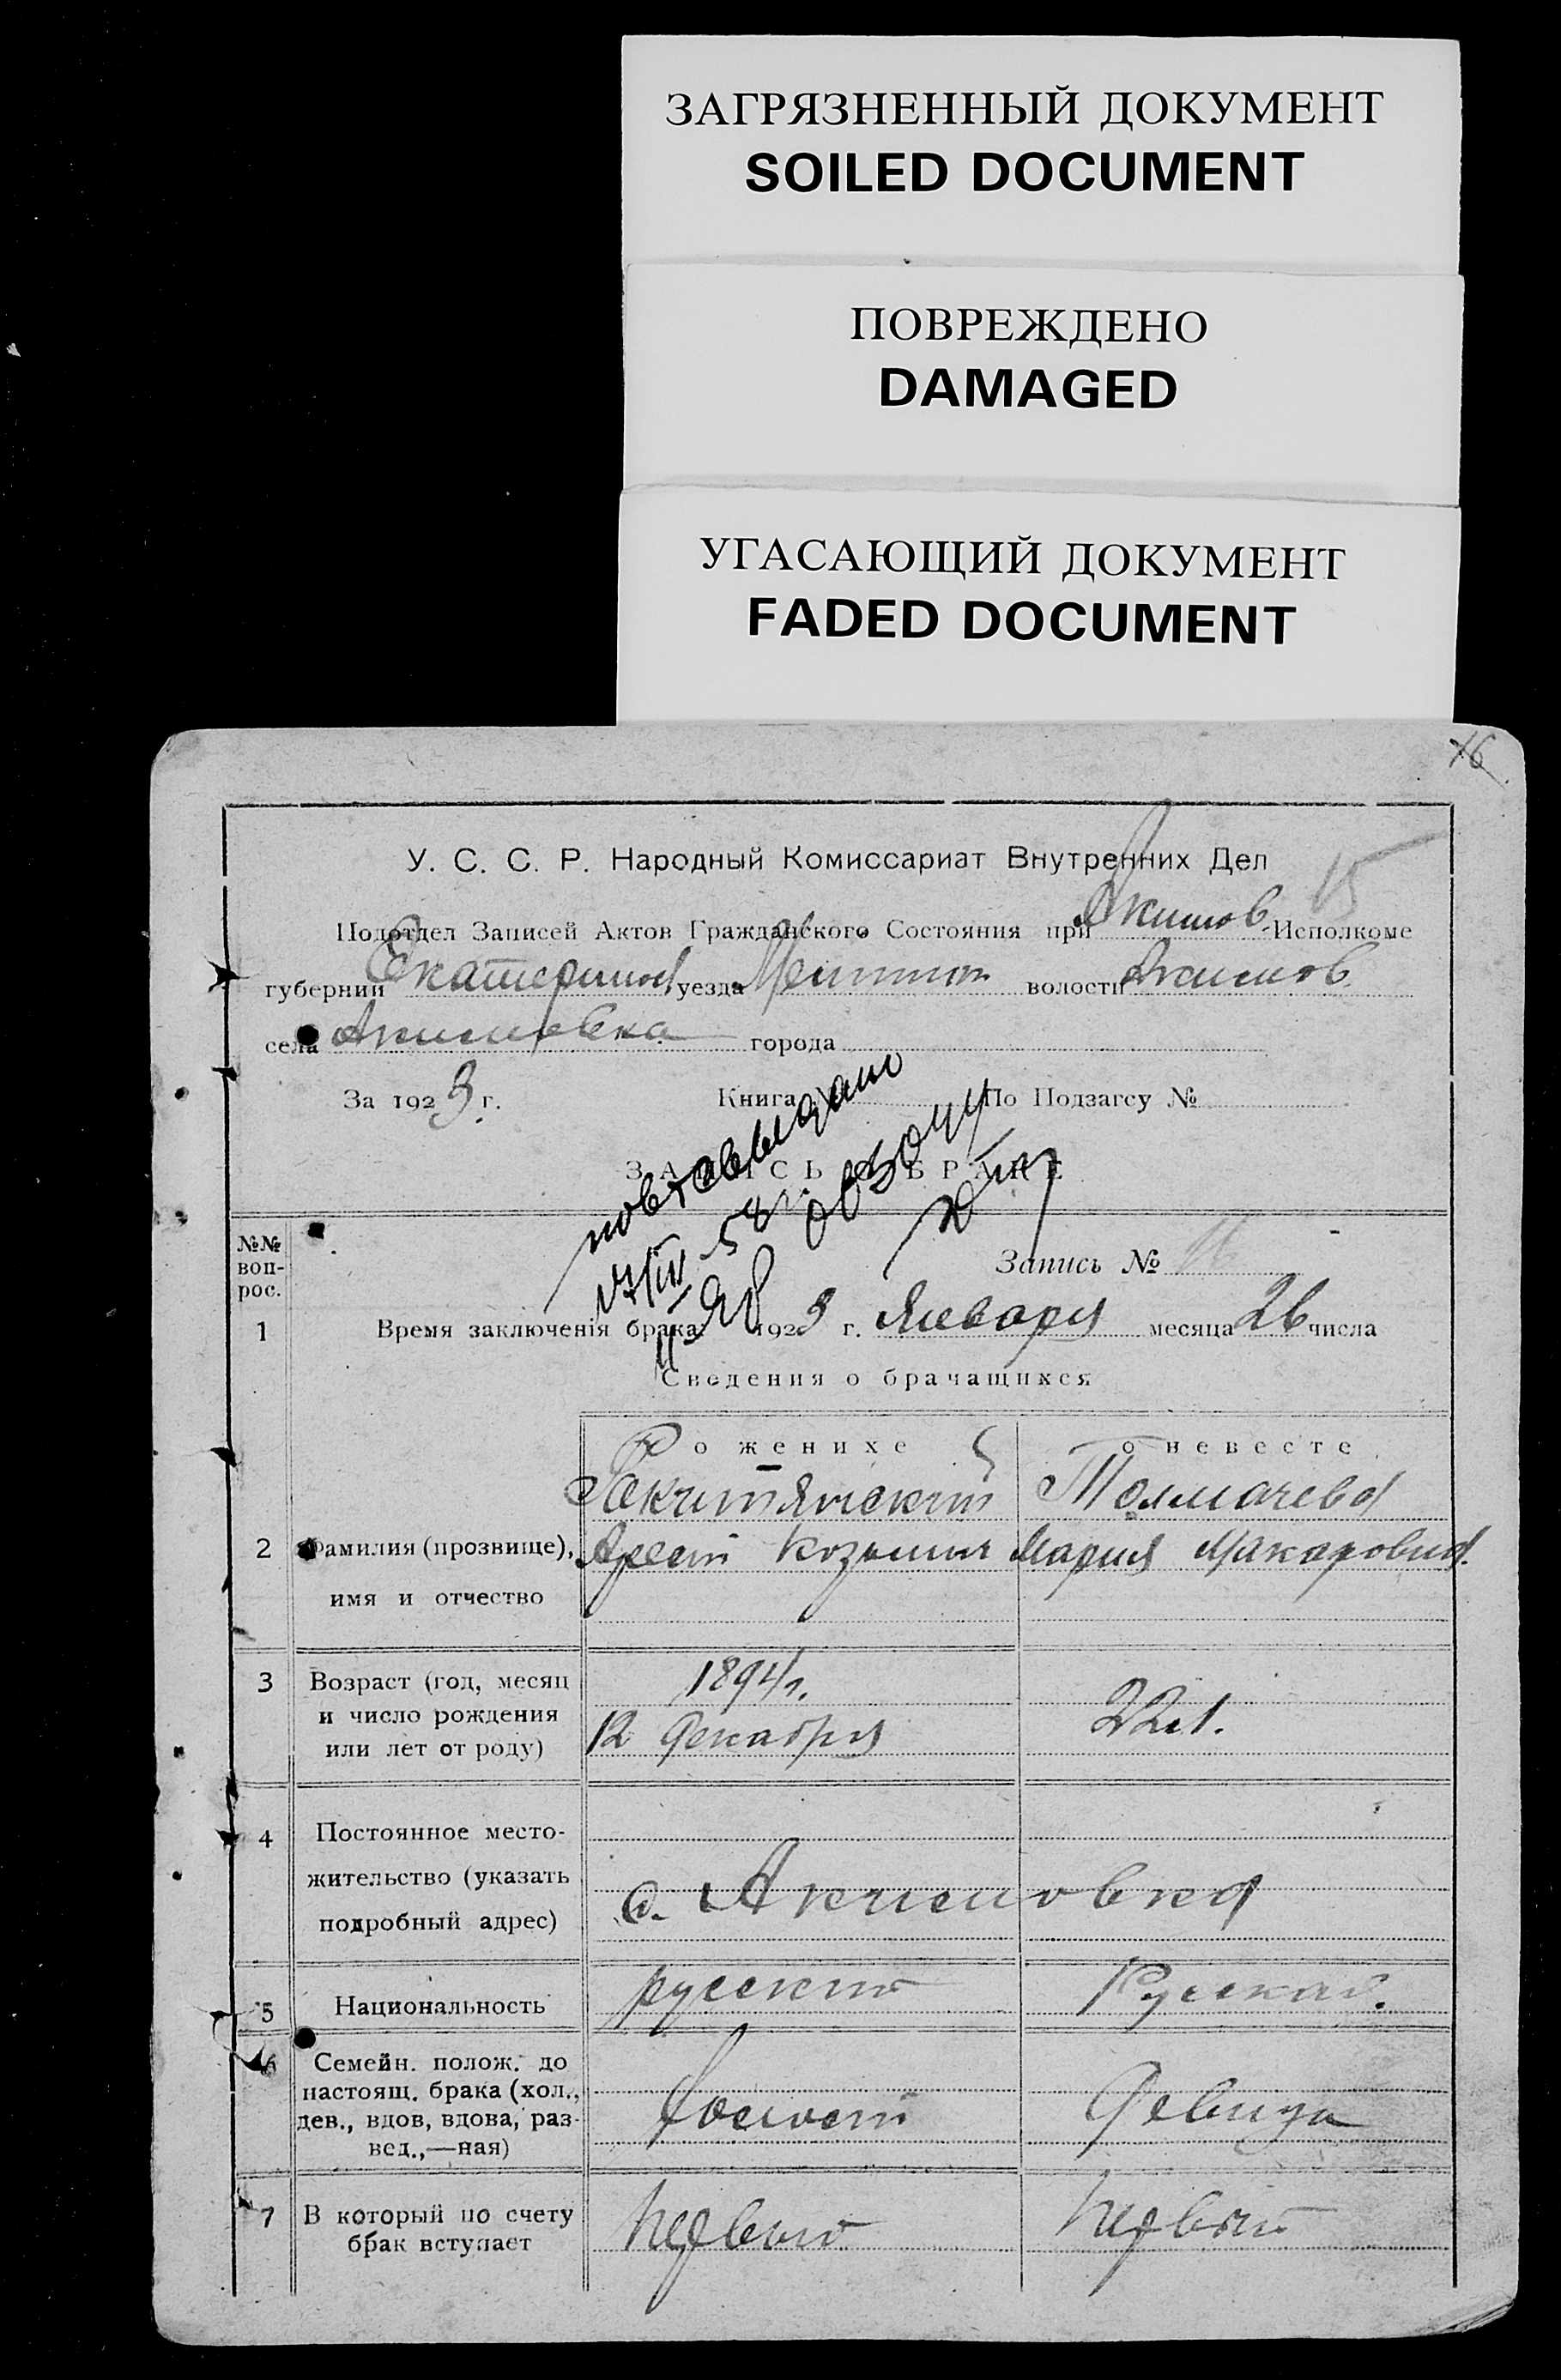 ЗАГРЯЗНЕННЫЙ ДОКУМЕНТ
SOILED DOCUMENT
ПОВРЕЖДЕНО
DAMAGED
УГАСАЮЩИЙ ДОКУМЕНТ
FADED DOCUMENT
16
У. С. С. Р. Народный Комиссариат Внутренних Дел
15
Подотдел Записей Актов Гражданского Состояния при Акимов. Исполкоме
губернии Екатеринос уезда волости Акимов.
села Акимовка города
За 1923 г. Книга По Подзагсу №
ЗАПИСЬ О БРАКЕ
повт. выдано
58 г.
№№ вопрос.
Запись №
1 Время заключенія брака 1923 г. Января месяца 26 числа
Сведения о брачащихся
о женихе о невесте
Ракитянский Толмачева
2 Фамилия (прозвище), Арсений Козьмич Мария Макаровна
имя и отчество
3 Возраст (год, месяц 1894 г.
и число рождения 22 л.
или лет от роду) 12 Декабря
4 Постоянное место-
жительство (указать с. Акимовка
подробный адрес)
5 Национальность русский Русская.
6 Семейн. полож. до
настоящ. брака (хол.,
дев., вдов, вдова, раз- холост Девица
вед.,—ная)
7 В который по счету Первый Первый
брак вступает